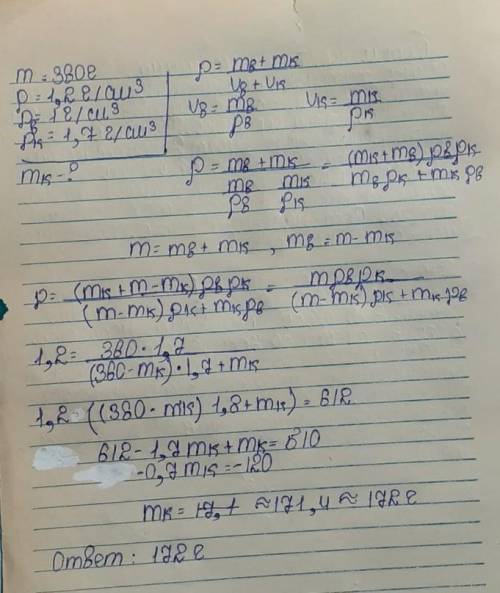 m = 360г
ρ = 1,2 г/см³
ρв = 1 г/см³
ρк = 1,7 г/см³
mк - ?
ρ = (mв + mк) / (vв + vк)
vв = mв / ρв    vк = mк / ρк
ρ = (mв + mк) / (mв/ρв  mк/ρк) = (mк + mв) ρв ρк / (mв ρк + mк ρв)
m = mв + mк , mв = m - mк
ρ = (mк + m - mк) ρв ρк / ((m - mк) ρк + mк ρв) = m ρв ρк / ((m - mк) ρк + mк ρв)
1,2 = 360 · 1,7 / ((360 - mк) · 1,7 + mк)
1,2 · ((360 · mк) 1,8 + mк) = 612
612 - 1,7 mк + mк = 510
-0,7 mк = -120
mк = ≈ 171,4 ≈ 172 г
Ответ : 172 г